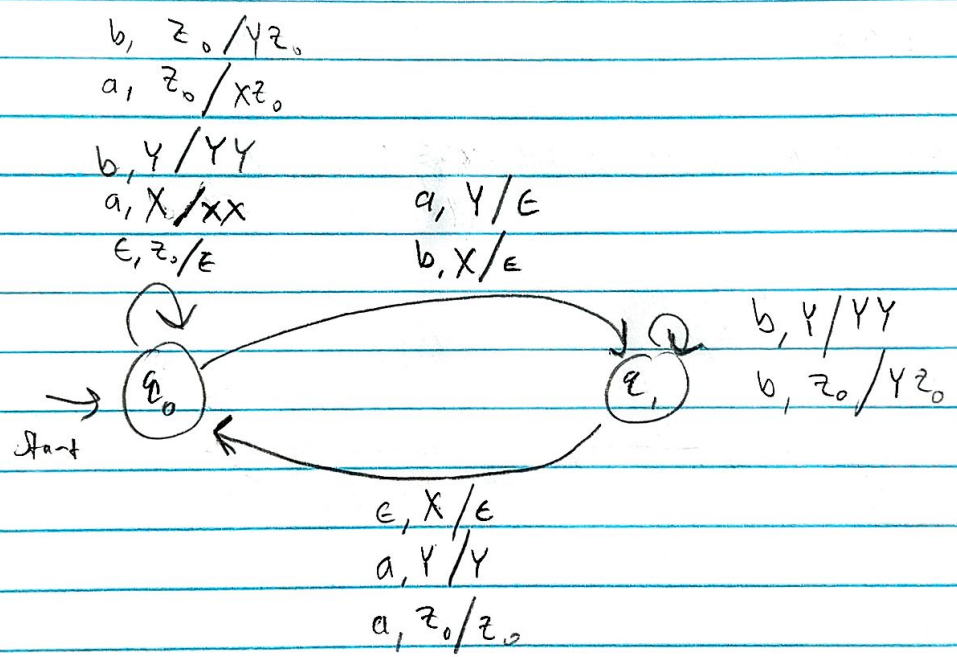 b, Z₀/YZ₀
a, Z₀/XZ₀
b, Y/YY
a, X/XX
ϵ, Z₀/ϵ
a, Y/ϵ
b, X/ϵ
b, Y/YY
b, Z₀/YZ₀
q₀
q₁
Start
ϵ, X/ϵ
a, Y/Y
a, Z₀/Z₀